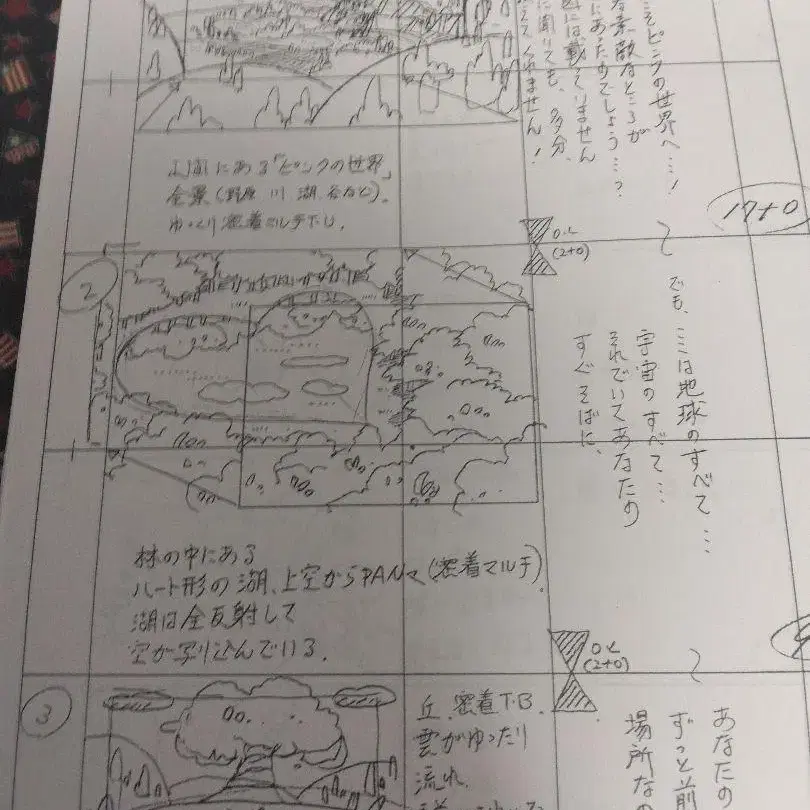 そピンクの世界へ…!
な素敵なところが
にあったのでしょう…?
には載っていません
に聞いても、多分、
えてくれません!
山間にある「ピンクの世界」
全景、(野原 川 湖 谷など)。
ゆっくり密着マルチT.U.
17+0
O.L
(2+0)
2
でも、ここは地球のすべて…
宇宙のすべて…
それでいてあなたの
すぐそばに、
林の中にある
ハート形の湖、上空からPAN(密着マルチ)
湖は全反射して
空が写り込んでいる。
O.L
(2+0)
3
丘、密着T.B.
雲がゆったり
流れ
あなたの
ずっと前
場所なの